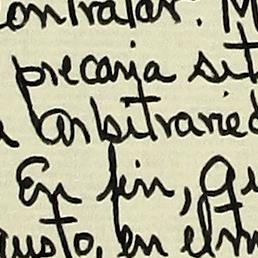 ontratar. M
precaria sit
a arbitraried
En fin, Qu
gusto, en el m